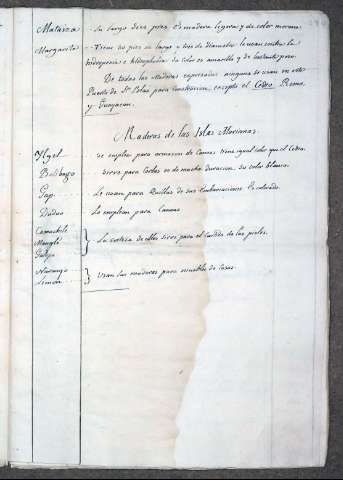 Matarza ... Su largo diez pies, es madera ligera y de color moreno
Margarita ... Tiene un pies de largo y tres de diametro la usan contra la
hidropesia è hidrophobia su color es amarillo y de bastante peso.
De todas las Maderas expresadas ninguna se usan en este
Puerto de Sn. Blas para Construccion, excepto el Cedro, Pino,
y Guayacan.
Maderas de las Islas Marianas
Yfyel ... se emplea para armazon de Camas tiene igual color que el Cedro.
... sirve para Cortes es de mucha duracion su color blanco.
Gap ... Le usan para Quillas de sus Embarcaciones su colorado
Dadao ... Lo emplean para Camas
Camachile
Mangle } La corteza de ellos sirve para el Curtido de las pieles.
Naranjo
Limon } Usan sus maderas para mueble de Casas.